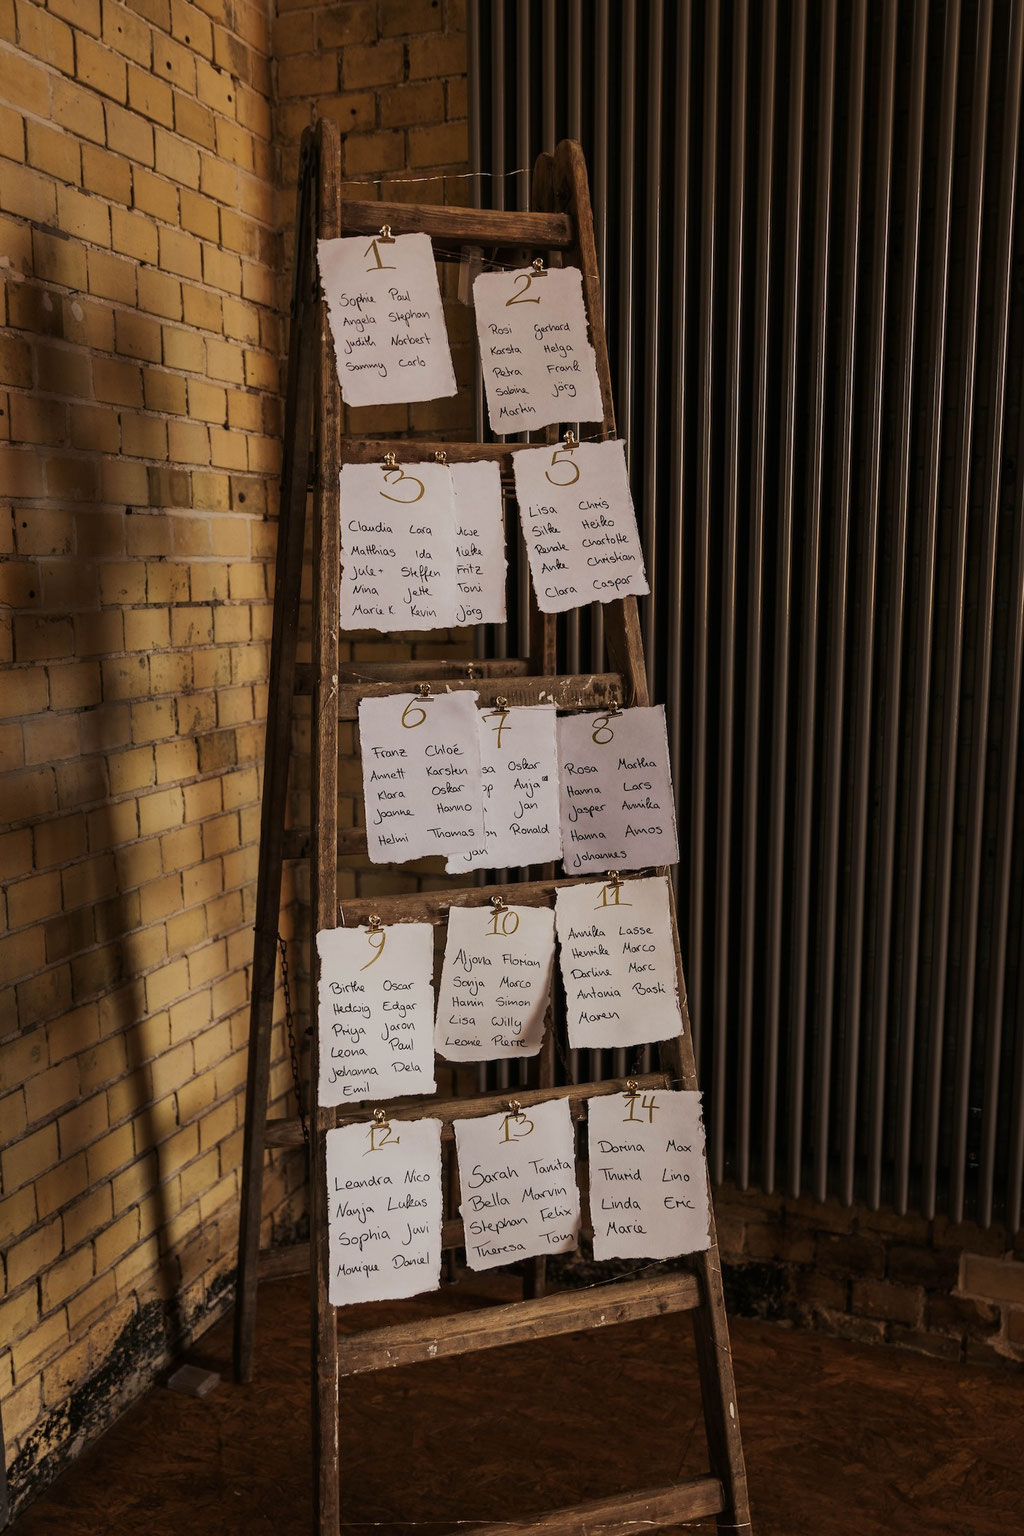 1
Sophie Paul
Angela Stephan
Judith Norbert
Sammy Carlo
2
Rosi Gerhard
Karsta Helga
Petra Frank
Sabine Jörg
Martin
3
Claudia Lara
Matthias Ida
Jule + Steffen
Nina Jette
Marie K. Kevin
Fritz
Toni
Jörg
5
Lisa Chris
Silke Heiko
Renate Charlotte
Anke Christian
Clara Caspar
6
Franz Chloé
Annett Karsten
Klara Oskar
Joanne Hanno
Helmi Thomas
7
Oskar
Anja
Jan
Ronald
Jan
8
Rosa Martha
Hanna Lars
Jasper Annika
Hanna Amos
Johannes
9
Birthe Oscar
Hedwig Edgar
Priya Jaron
Leona Paul
Johanna Dela
Emil
10
Aljona Florian
Sonja Marco
Hanin Simon
Lisa Willy
Leonie Pierre
11
Annika Lasse
Henrike Marco
Darline Marc
Antonia Basti
Maren
12
Leandra Nico
Nanja Lukas
Sophia Juvi
Monique Daniel
13
Sarah Tanita
Bella Marvin
Stephan Felix
Theresa Tom
14
Dorina Max
Thurid Lino
Linda Eric
Marie